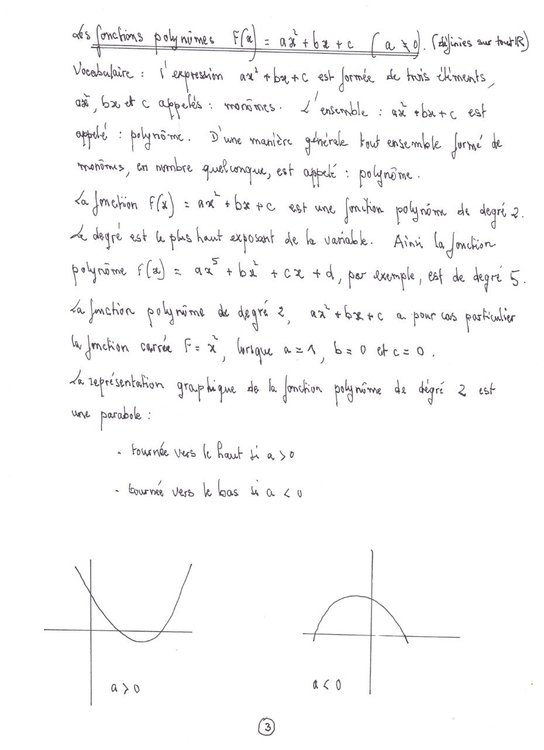 Les fonctions polynômes F(x) = ax² + bx + c (a ≠ 0). (définies sur tout ℝ)
Vocabulaire : l'expression ax² + bx + c est formée de trois éléments,
ax², bx et c appelés : monômes. L'ensemble : ax² + bx + c est
appelé : polynôme. D'une manière générale tout ensemble formé de
monômes, en nombre quelconque, est appelé : polynôme.
La fonction F(x) = ax² + bx + c est une fonction polynôme de degré 2.
Le degré est le plus haut exposant de la variable. Ainsi la fonction
polynôme F(x) = ax⁵ + bx² + cx + d, par exemple, est de degré 5.
La fonction polynôme de degré 2, ax² + bx + c a pour cas particulier
la fonction carrée F = x², lorsque a = 1, b = 0 et c = 0.
La représentation graphique de la fonction polynôme de dégré 2 est
une parabole :
- tournée vers le haut si a > 0
- tournée vers le bas si a < 0
a > 0
a < 0
3